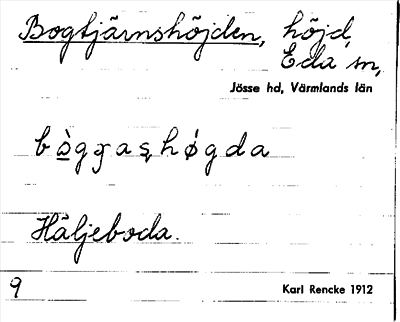 Bogtjärnshöjden, höjd,
Eda sn,
Jösse hd, Värmlands län
Häljeboda.
9
Karl Rencke 1912